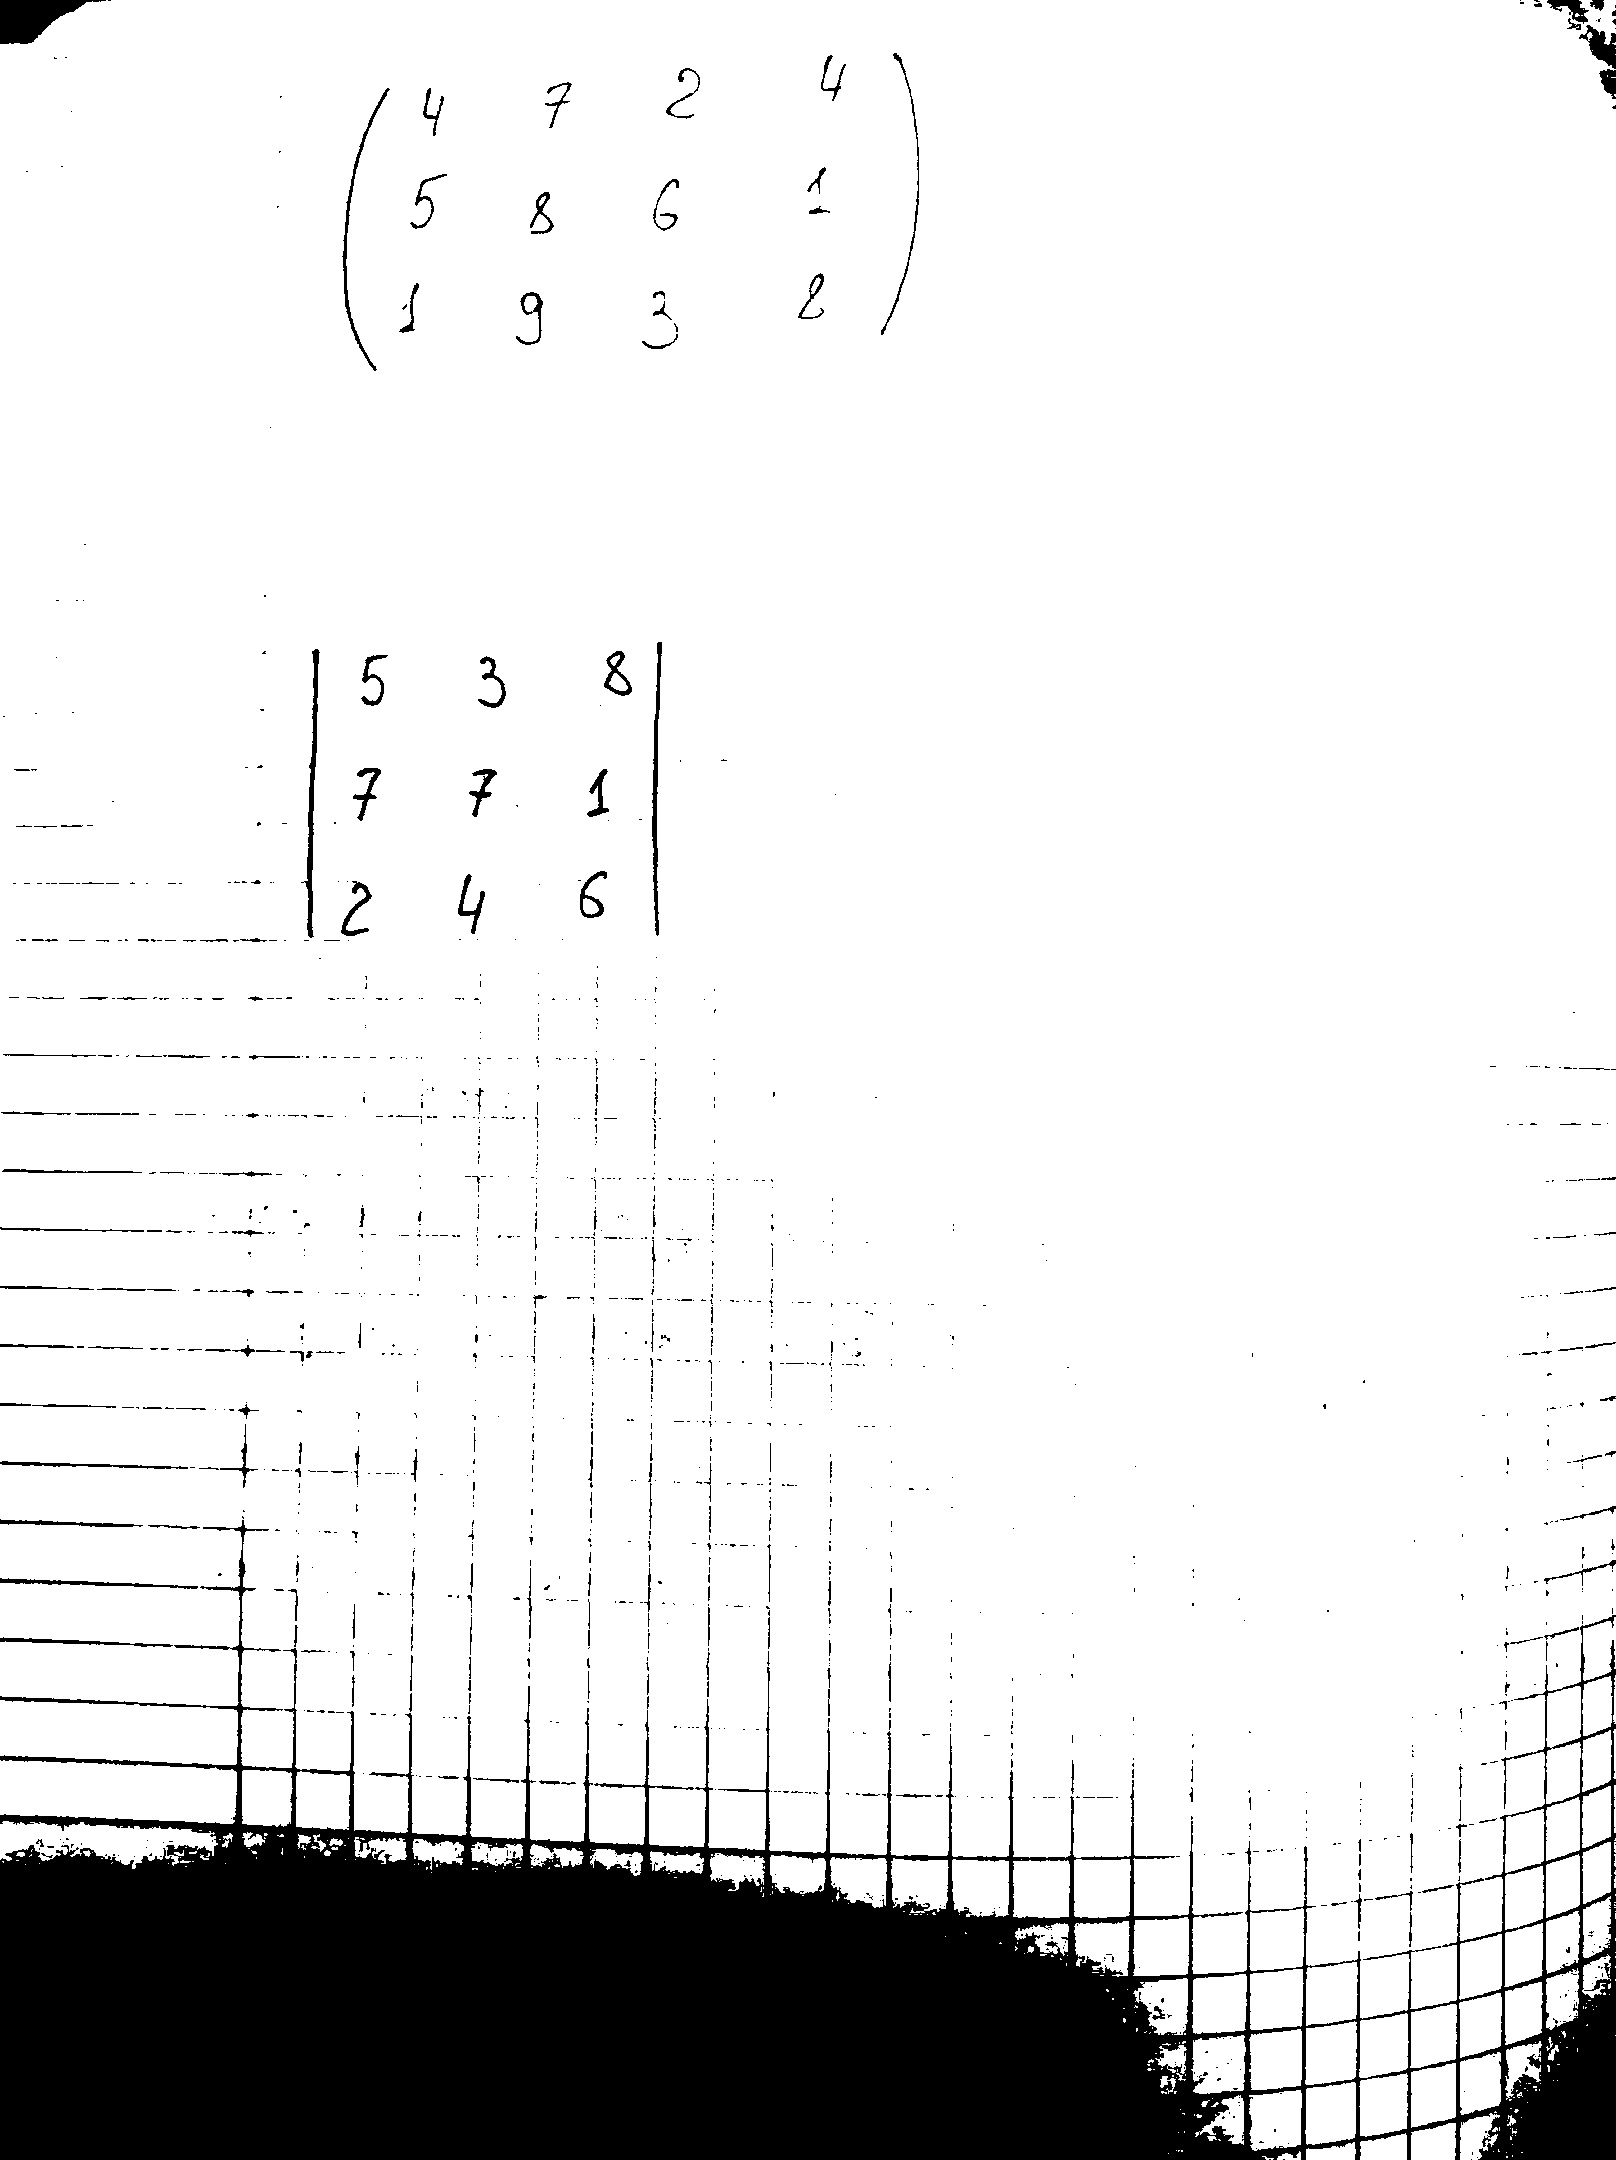 4 7 2 4
5 8 6 1
1 9 3 8
5 3 8
7 7 1
2 4 6